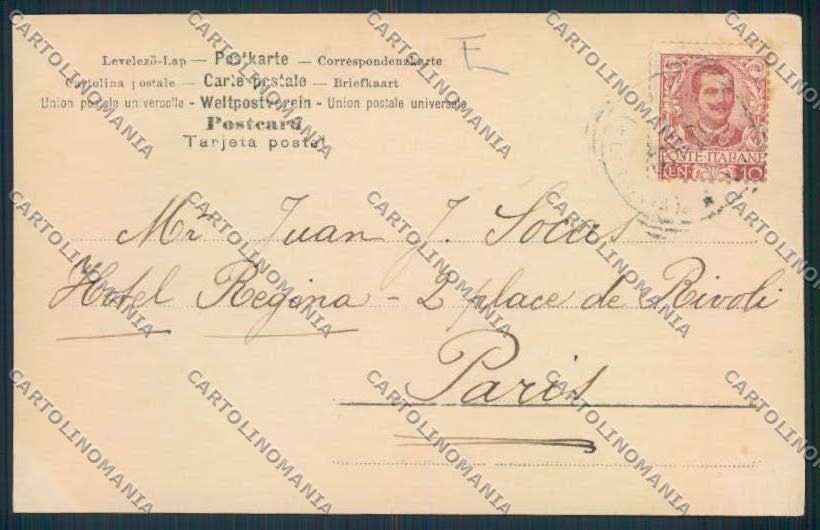 E
Levelező-Lap — Postkarte — Correspondenzkarte
Cartolina postale — Carte postale — Briefkaart
Union postale universelle - Weltpostverein - Union postale universale
Postcard
Tarjeta postal
POSTE ITALIANE
CEN 10
Mr Juan J. Socas
Hotel Regina - 2 place de Rivoli
Paris
CARTOLINOMANIA